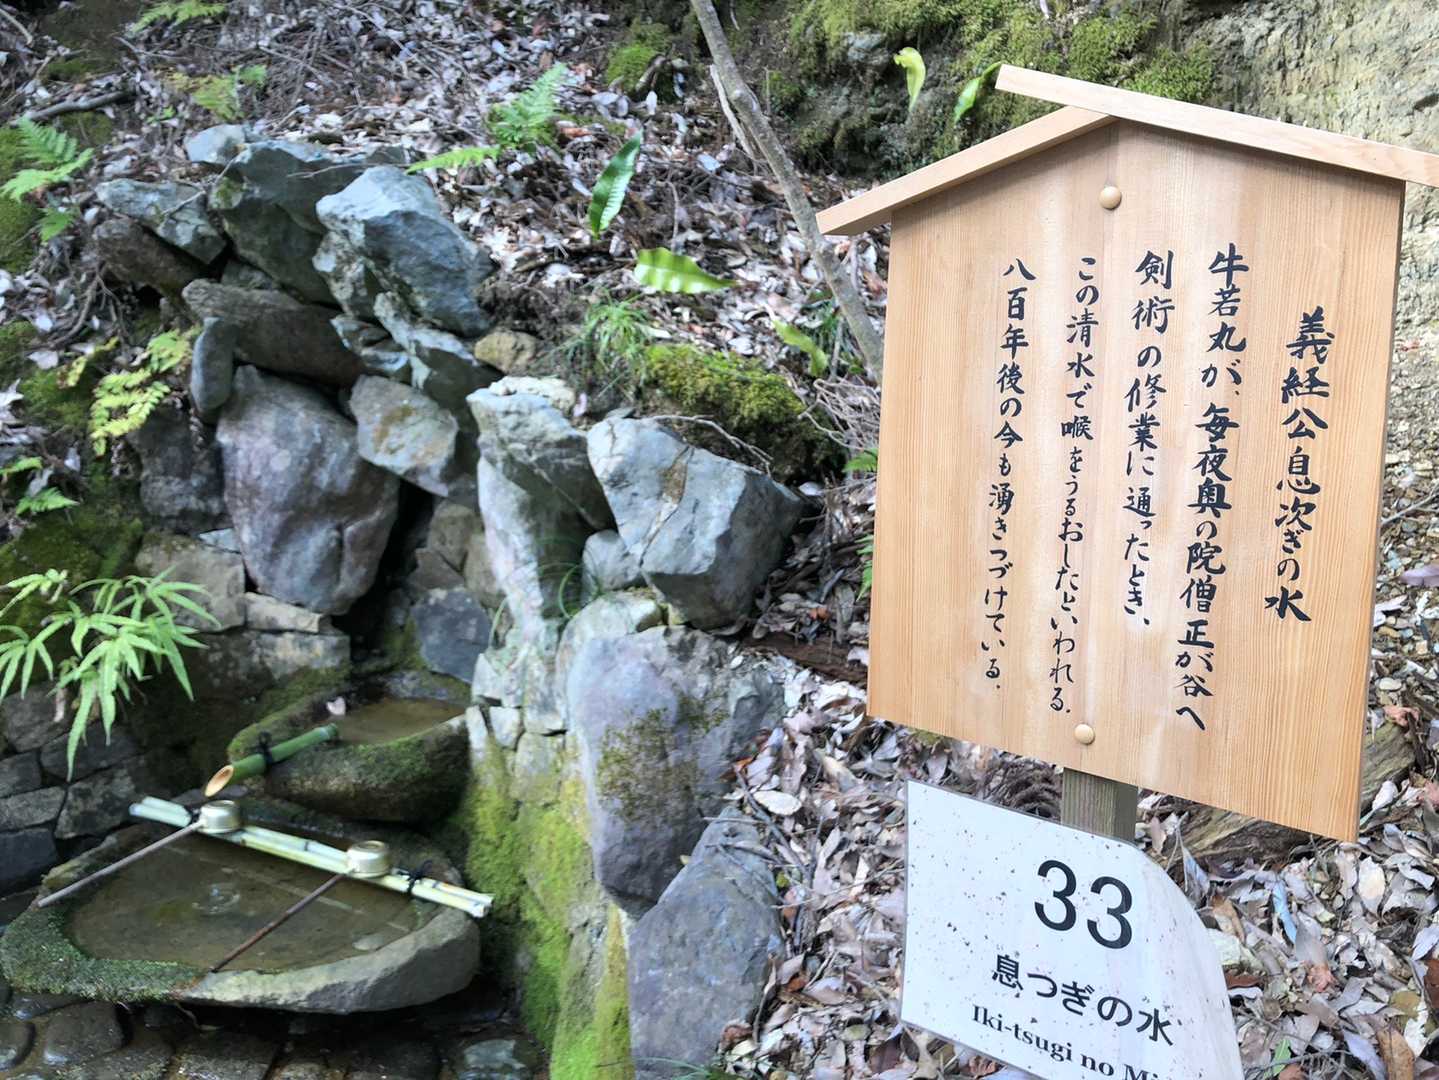 義経公息次ぎの水
牛若丸が、毎夜奥の院僧正が谷へ
剣術の修業に通ったとき、
この清水で喉をうるおしたといわれる.
八百年後の今も湧きつづけている.
33
息つぎの水
Iki-tsugi no